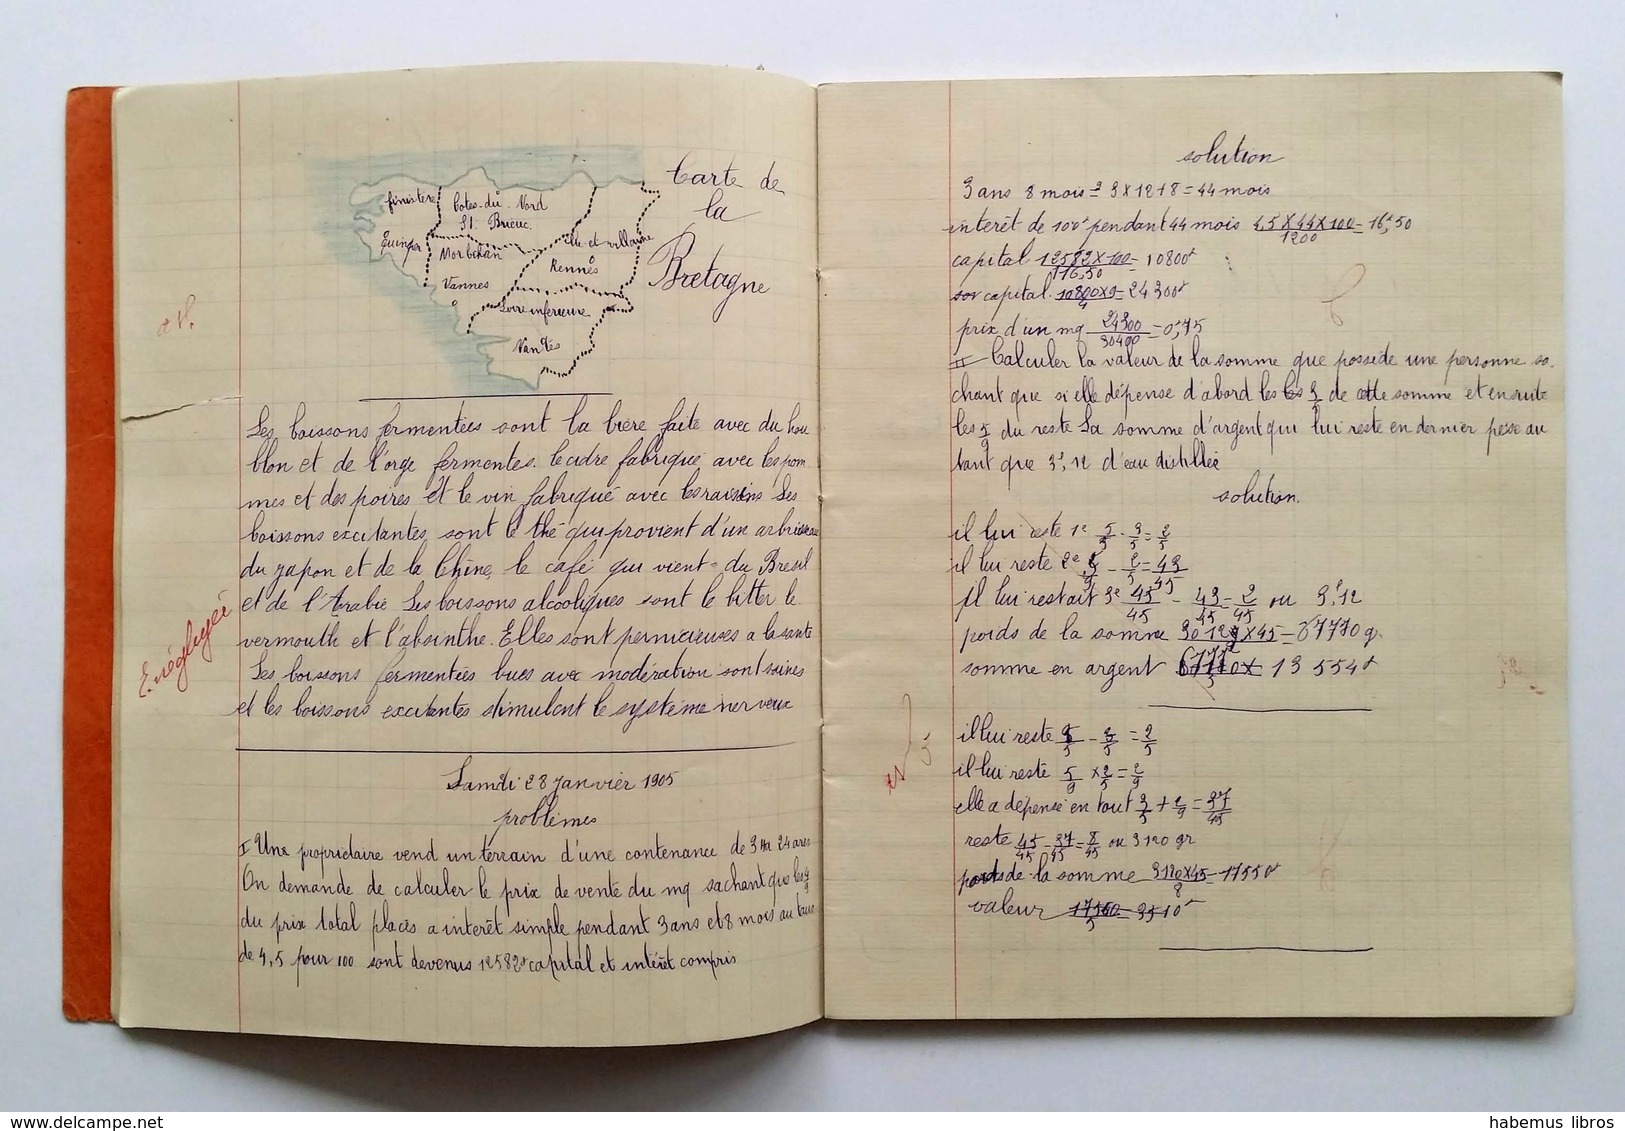 Carte de
la
Bretagne
finistère
Côtes-du-Nord
St Brieuc
Morbihan
Vannes
Ille et villaine
Rennes
Loire inférieure
Nantes
E. négligée
Les boissons fermentées sont la bière faite avec du hou
blon et de l'orge fermentés. le cidre fabriqué avec les pom
mes et des poires et le vin fabriqué avec les raisins Les
boissons excitantes sont le thé qui provient d'un arbrisseau
du japon et de la Chine, le café qui vient du Bresil
et de l'Arabie Les boissons alcooliques sont le bitter le
vermouth et l'absinthe. Elles sont pernicieuses a la santé
Les boissons fermentées bues avec modération sont saines
et les boissons excitantes stimulent le système nerveux
Samdi 28 janvier 1905
problèmes
I Une propriétaire vend un terrain d'une contenance de 3 Ha 24 ares
On demande de calculer le prix de vente du mq sachant que les 4/9
du prix total placés a interêt simple pendant 3 ans et 8 mois au taux
de 4,5 pour 100 sont devenus 12582f capital et intérêt compris
solution
3 ans 8 mois = 3 x 12 + 8 = 44 mois
interêt de 100f pendant 44 mois 4,5 x 44 x 100 / 1200 = 16f,50
capital 12582 x 100 / 116,50 = 10800f
capital 10800 x 9 / 4 = 24300f
prix d'un mq 24300 / 32400 = 0f,75
II Calculer la valeur de la somme que possède une personne sa-
chant que si elle dépense d'abord les les 3/5 de cette somme et ensuite
les 5/9 du reste La somme d'argent qui lui reste en dernier pèse au
tant que 3l,12 d'eau distillée
solution.
il lui reste 1e 5/5 - 3/5 = 2/5
il lui reste 2e 5/9 - 2/5 = 43/45
il lui restait 3e 45/45 - 43/45 = 2/45 ou 3l,12
poids de la somme x 45 = 67770 g.
somme en argent 13 554f
il lui reste 5/5 - 3/5 = 2/5
il lui reste 5/9 x 2/5 = 2/9
elle a dépensé en tout 3/5 + 2/9 = 37/45
reste 45/45 - 37/45 = 8/45 ou 3120 gr
poids de la somme 3120 x 45 / 8 = 17550f
valeur 17550 / 5 = 3510f
habemus libros